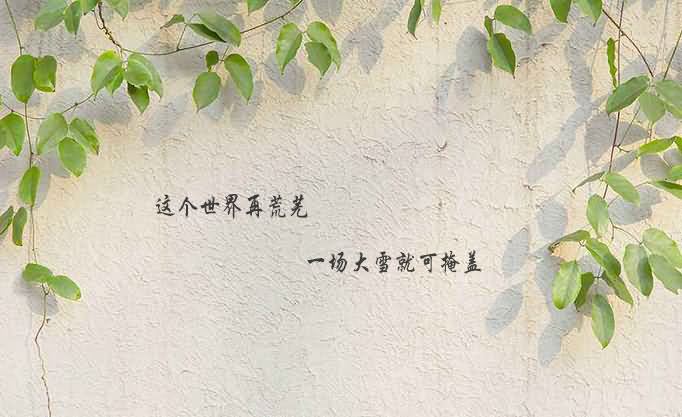 这个世界再荒芜
一场大雪就可掩盖